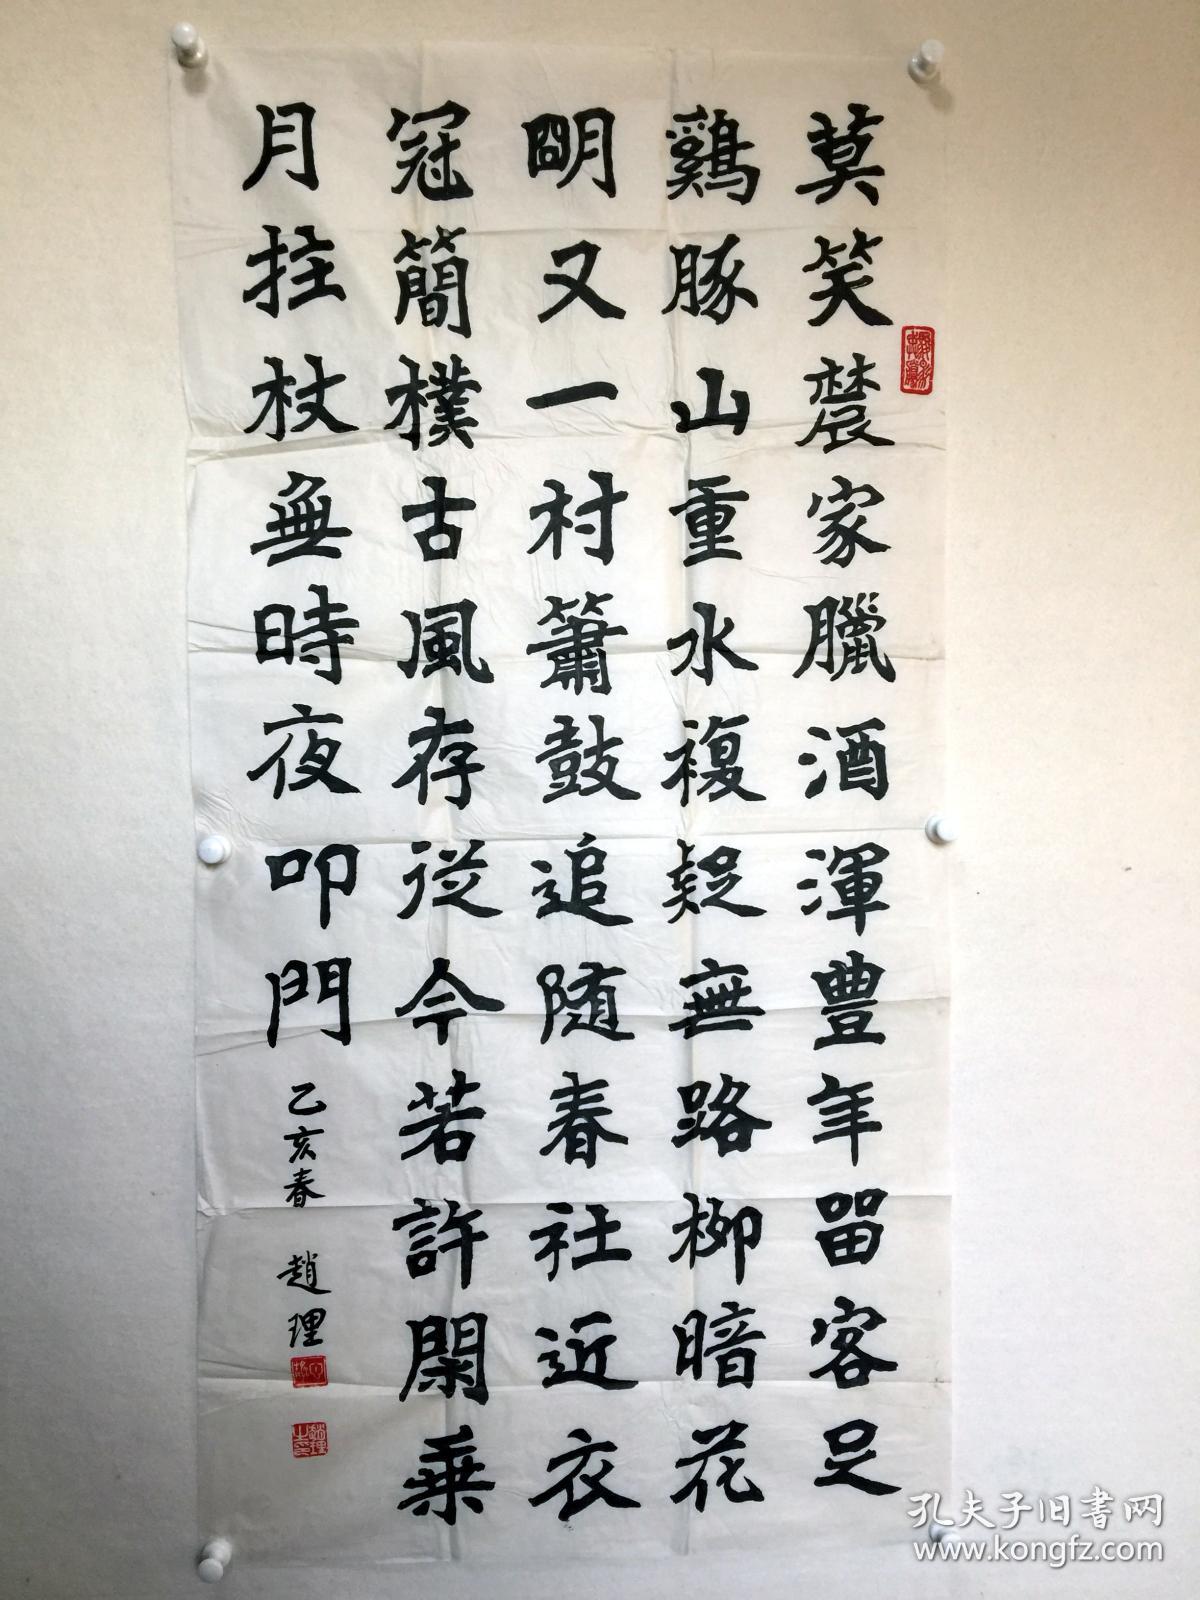 莫笑農家臘酒渾豊年留客足
鷄豚山重水複疑無路柳暗花
明又一村簫鼓追随春社近衣
冠簡樸古風存從今若許閑乗
月拄杖無時夜叩門
乙亥春 趙理
趙理之印
孔夫子旧书网
www.kongfz.com